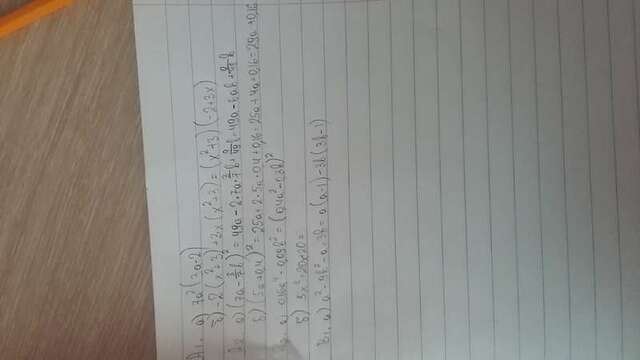 А1. а) 7a²(3a-2)
б) -2(x²+3)+3x(x²+3) = (x²+3)(-2+3x)
а) (7a - 3/7 b)² = 49a - 2·7a·3/7 b + 9/49 b = 49a - 6ab + 9/49 b
б) (5a+0,4)² = 25a + 2·5a·0,4 + 0,16 = 25a + 4a + 0,16 = 29a + 0,16
а) 0,16a⁴ - 0,09b² = (0,4a² - 0,3b)²
б) 5x² - 20x + 20 =
В1. а) a² - 9b² - a - 3b = a(a-1) - 3b(3b-1)